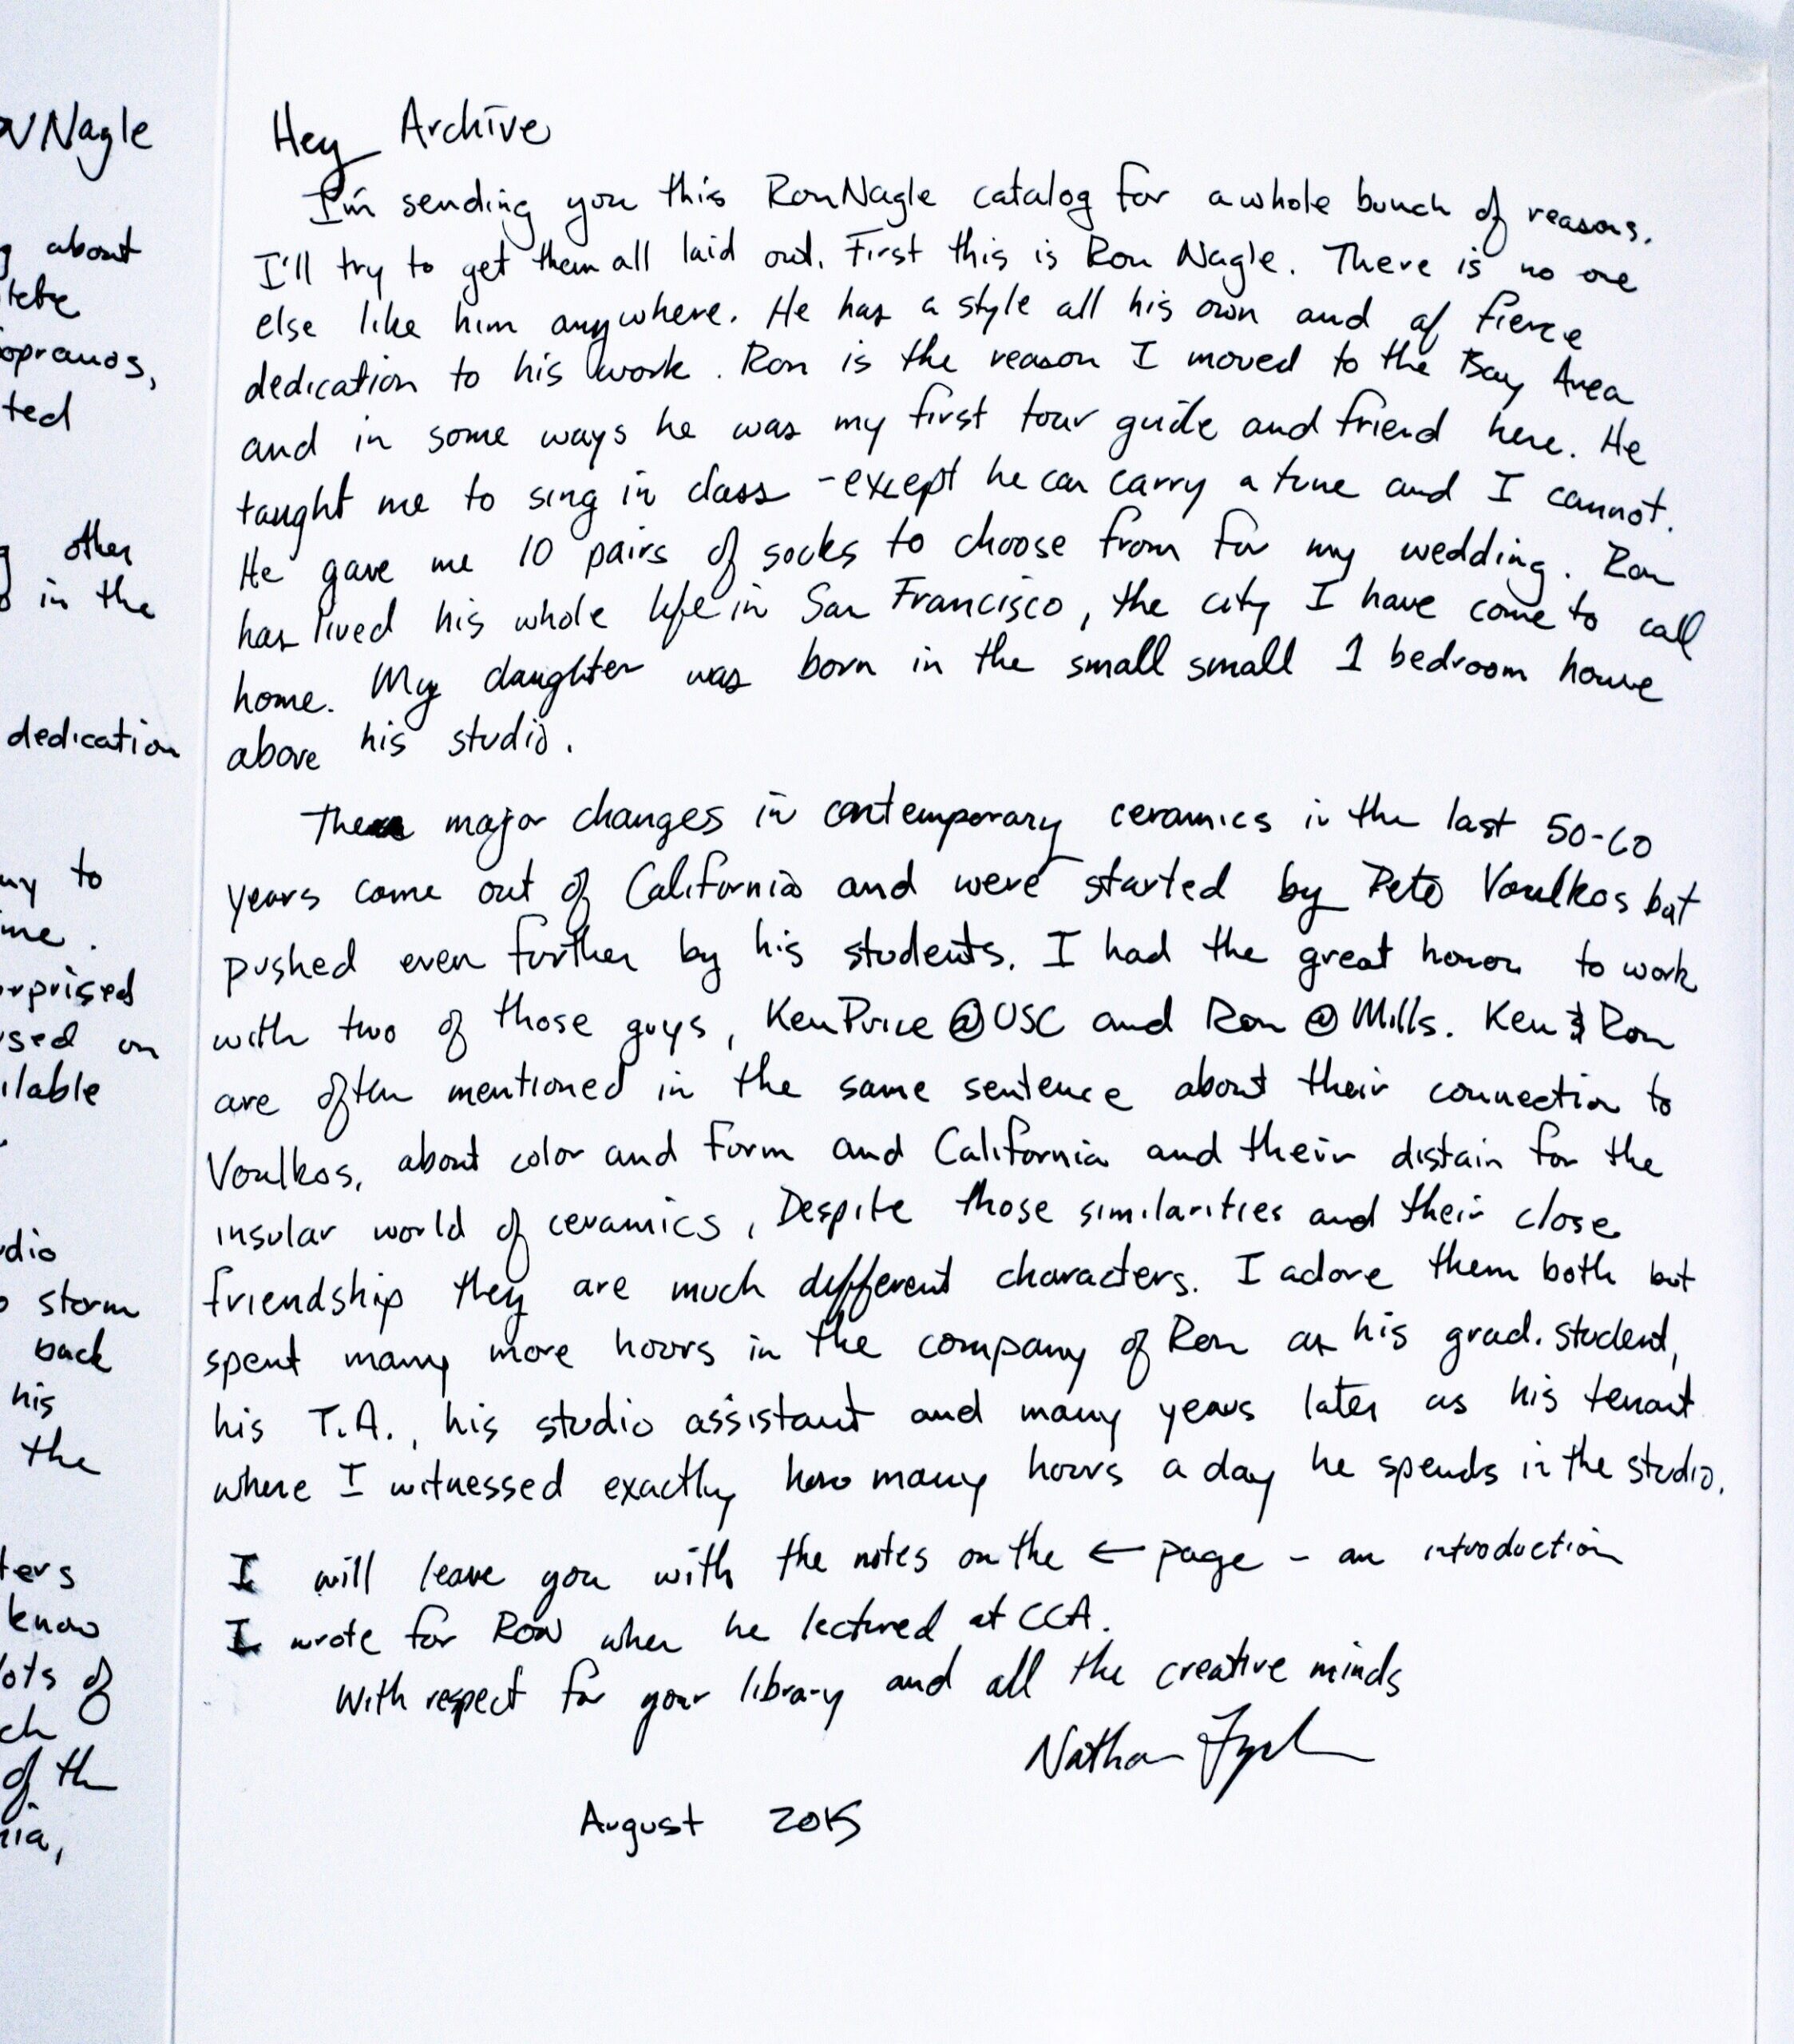 N Nagle
about
opranos,
ted
other
in the
dedication
to
me.
rprised
sed on
ilable
dio
storm
back
his
the
ters
know
lots of
ch
of th
nia,
Hey Archive
I'm sending you this Ron Nagle catalog for a whole bunch of reasons.
I'll try to get them all laid out. First this is Ron Nagle. There is no one
else like him anywhere. He has a style all his own and of fierce
dedication to his work. Ron is the reason I moved to the Bay Area
and in some ways he was my first tour guide and friend here. He
taught me to sing in class - except he can carry a tune and I cannot.
He gave me 10 pairs of socks to choose from for my wedding. Ron
has lived his whole life in San Francisco, the city I have come to call
home. My daughter was born in the small small 1 bedroom house
above his studio.
The major changes in contemporary ceramics in the last 50-60
years came out of California and were started by Pete Voulkos but
pushed even further by his students. I had the great honor to work
with two of those guys, Ken Price @ USC and Ron @ Mills. Ken & Ron
are often mentioned in the same sentence about their connection to
Voulkos, about color and form and California and their distain for the
insular world of ceramics. Despite those similarities and their close
friendship they are much different characters. I adore them both but
spent many more hours in the company of Ron as his grad. student,
his T.A., his studio assistant and many years later as his tenant
where I witnessed exactly how many hours a day he spends in the studio.
I will leave you with the notes on the ← page - an introduction
I wrote for Ron when he lectured at CCA.
With respect for your library and all the creative minds
Nathan
August 2015